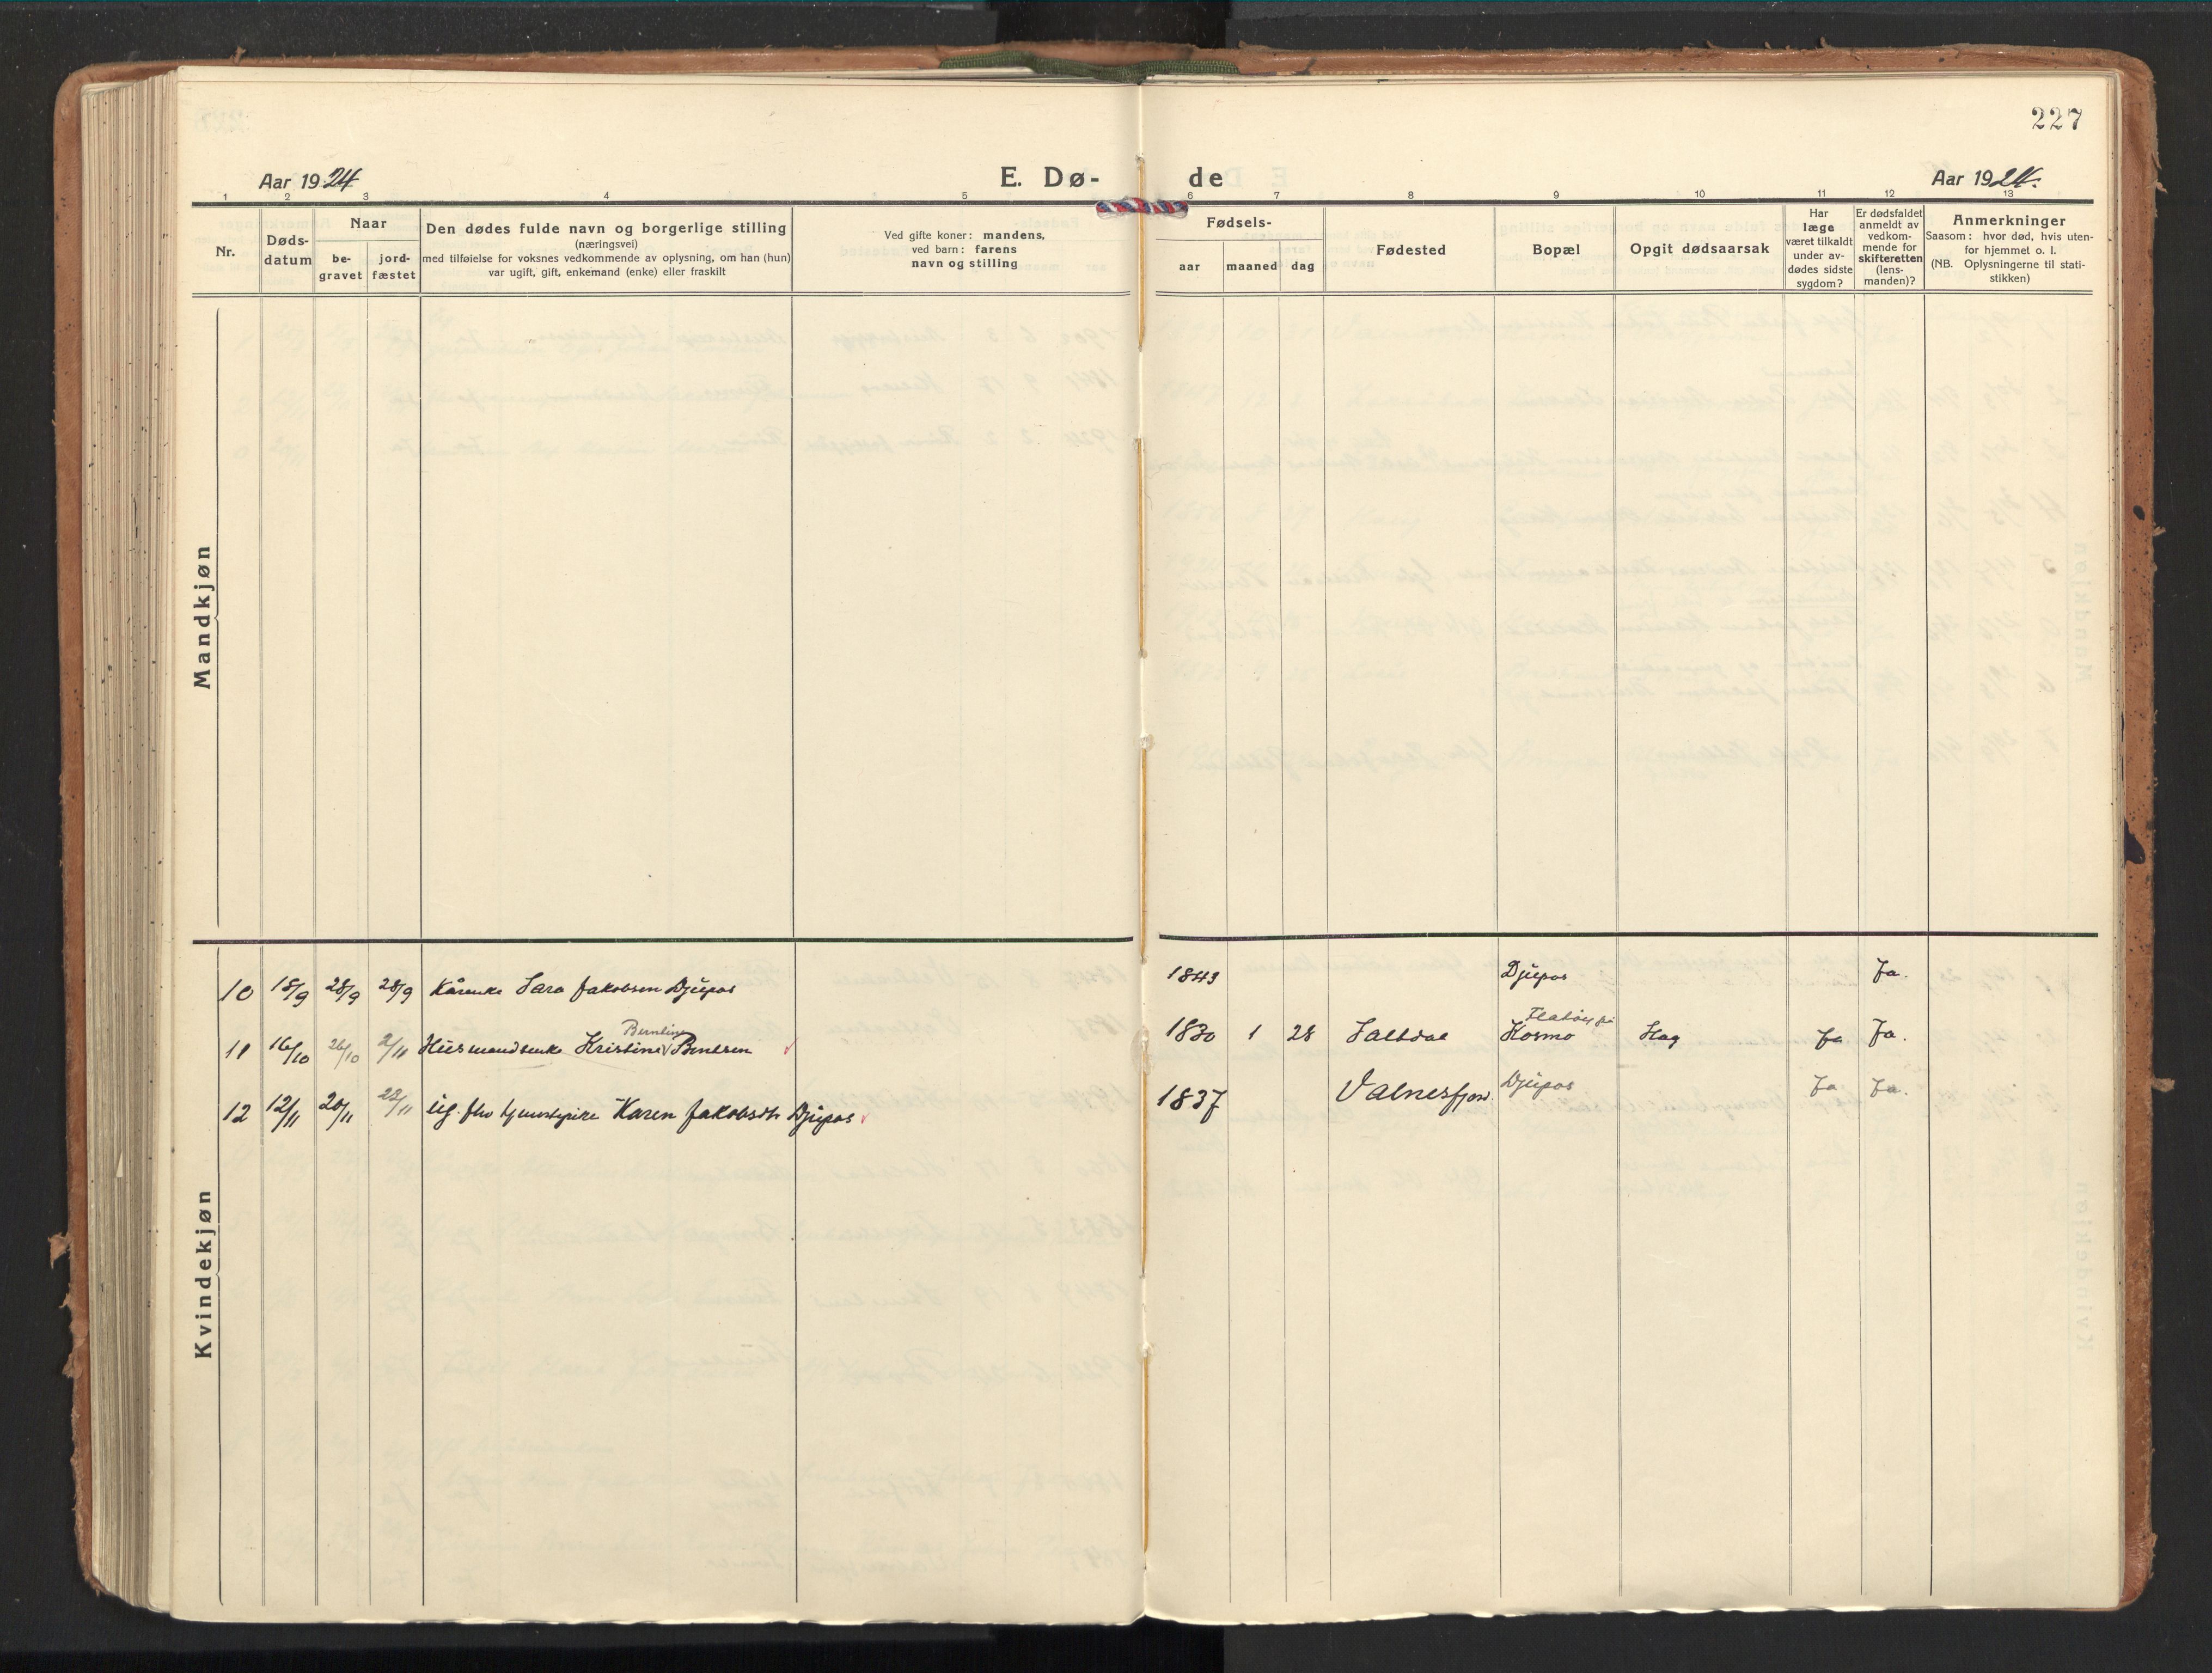 227
Aar 1924 E. Dø- de Aar 1924.
1 2 3 4 5 6 7 8 9 10 11 12 13
Nr.
Døds-
datum
Naar
be-
gravet
jord-
fæstet
Den dødes fulde navn og borgerlige stilling
(næringsvei)
med tilføielse for voksnes vedkommende av oplysning, om han (hun)
var ugift, gift, enkemand (enke) eller fraskilt
Ved gifte koner: mandens,
ved barn: farens
navn og stilling
Fødsels-
aar maaned dag
Fødested
Bopæl
Opgit dødsaarsak
Har
læge
været tilkaldt
under av-
dødes sidste
sygdom?
Er dødsfaldet
anmeldt av
vedkom-
mende for
skifteretten
(lens-
manden)?
Anmerkninger
Saasom: hvor død, hvis uten-
for hjemmet o. l.
(NB. Oplysningerne til stati-
stikken)
Mandkjøn
Kvindekjøn
10 18/9 28/9 28/9 Kårenke Sara Jakobsen Djupos 1843 Djupos Ja.
Berntine
11 16/10 26/10 2/11 Husmandsenke Kristine Berntsen 1830 1 28 Saltdal Kosmo Slag Ja Ja.
12 12/11 20/11 22/11 ug. fhv tjenestepike Karen Jakobsdtr Djupos 1837 Valnesfjord Djupos Ja Ja.